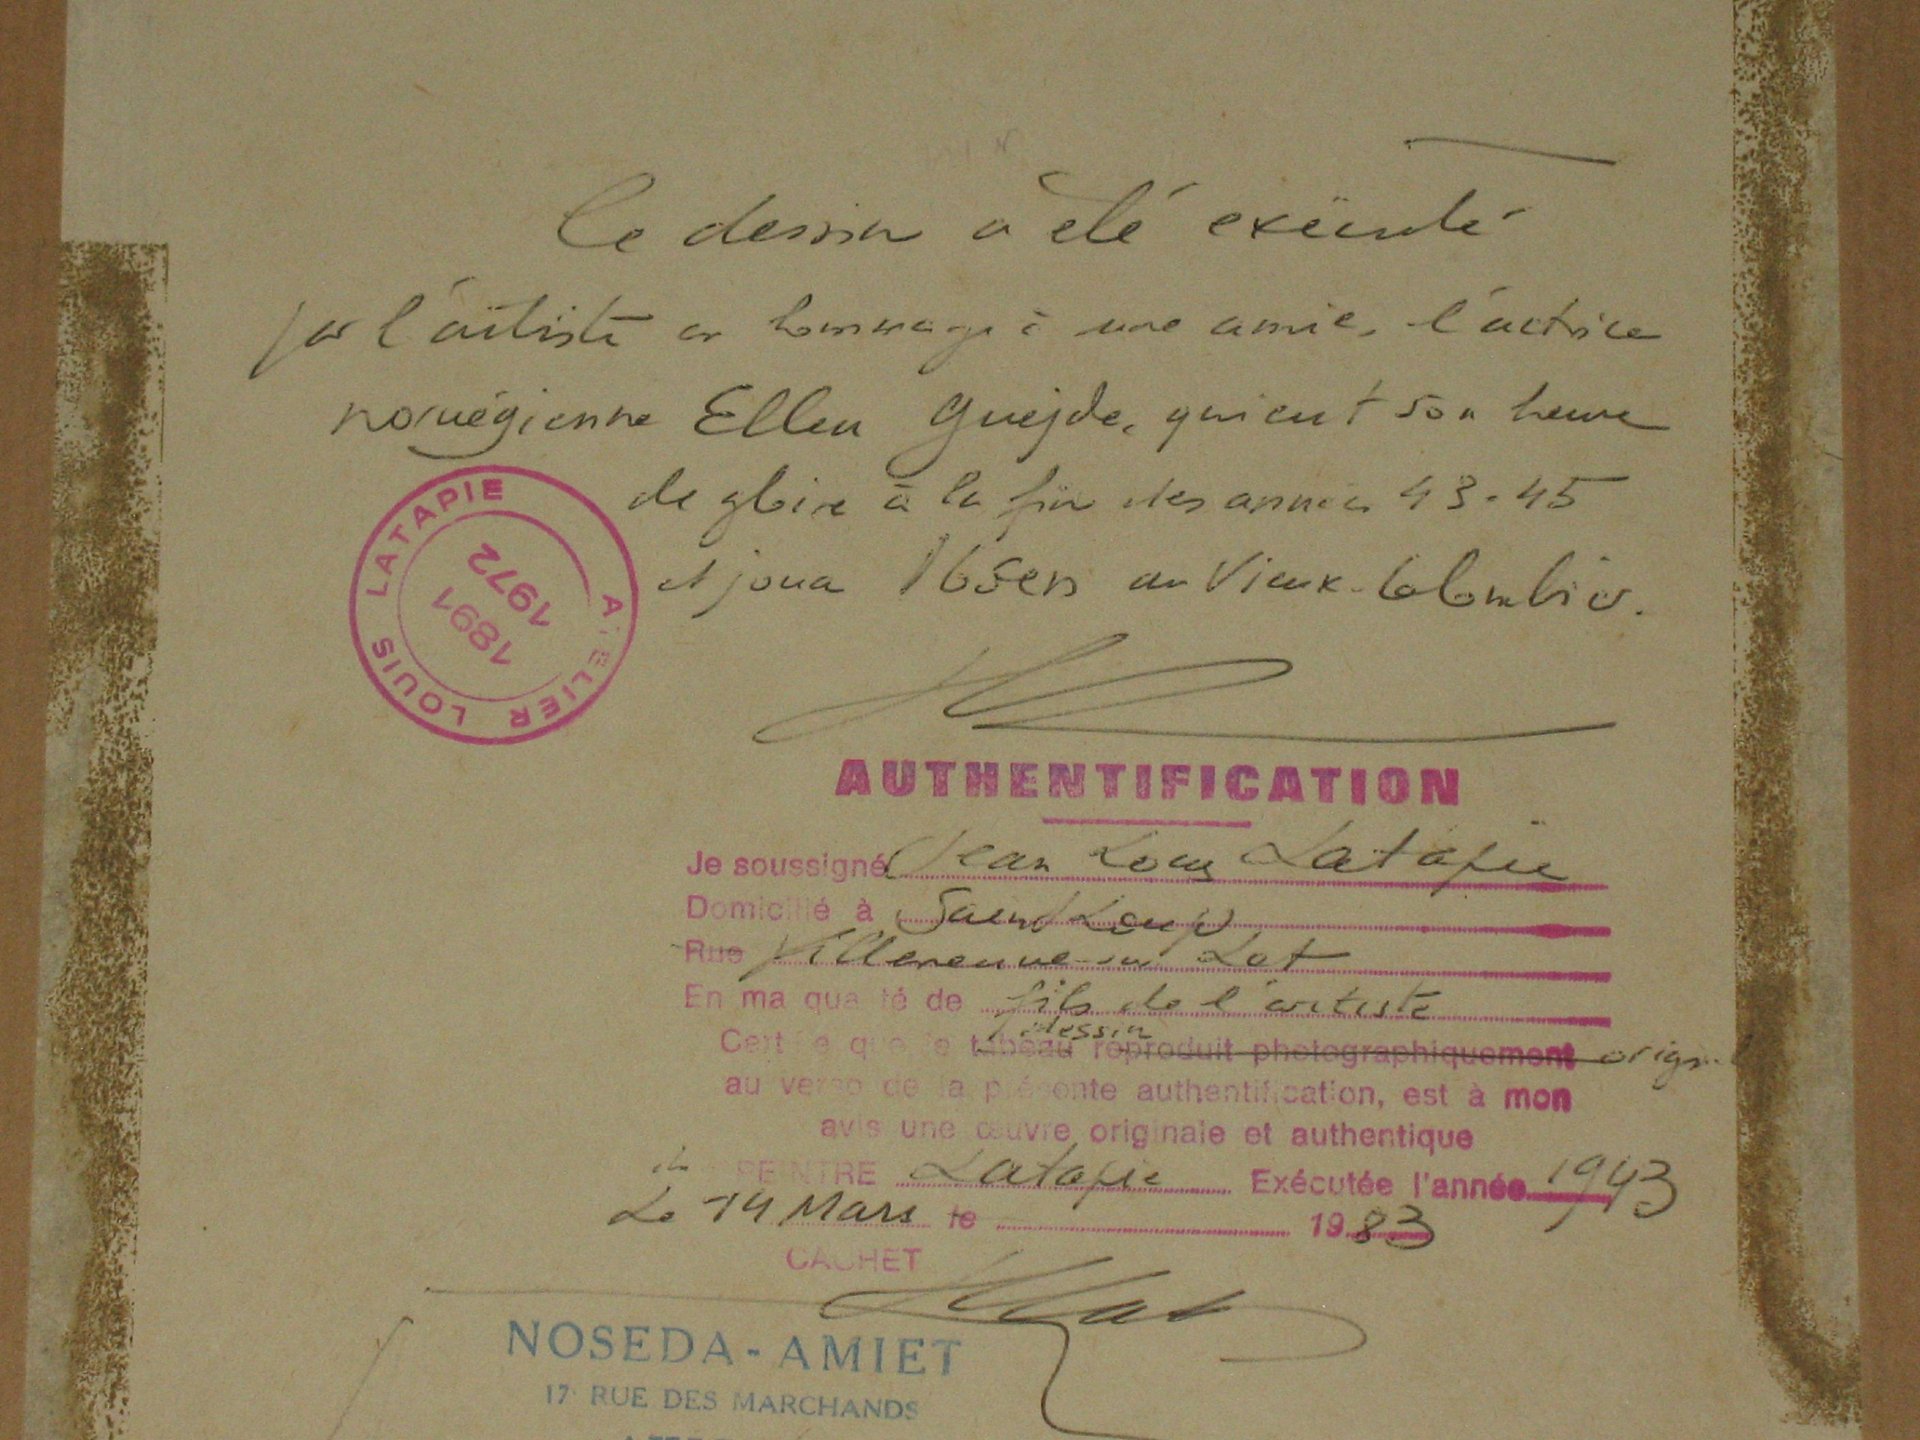 Ce dessin a été exécuté
par l'artiste en hommage à une amie, l'actrice
norvégienne Ellen Guejde, qui eut son heure
de gloire à la fin des années 43-45
et joua Ibsen au Vieux-Colombier.
ATELIER LOUIS LATAPIE
1891
1972
AUTHENTIFICATION
Je soussigné Jean Louis Latapie
Domicilié à Saint Loup
Rue Villeneuve-sur Lot
En ma qualité de fils de l'artiste
dessin
Certifie que le tableau reproduit photographiquement original
au verso de la présente authentification, est à mon
avis une œuvre originale et authentique
du PEINTRE Latapie Exécutée l'année 1943
Le 14 Mars le 1983
CACHET
NOSEDA-AMIET
17 RUE DES MARCHANDS